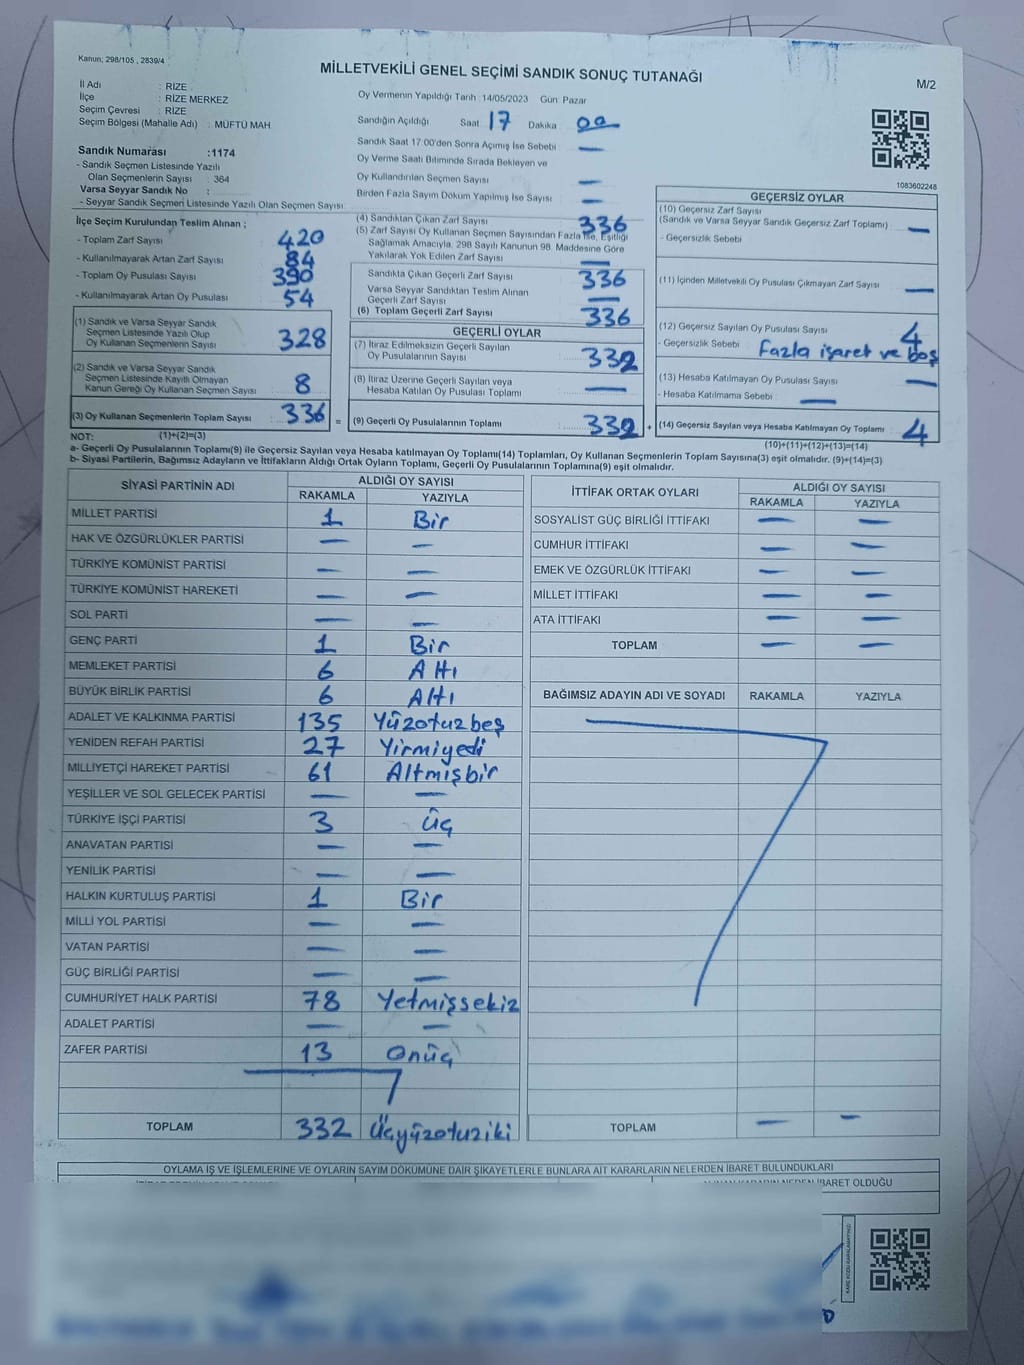 Kanun; 298/105 , 2839/4
MİLLETVEKİLİ GENEL SEÇİMİ SANDIK SONUÇ TUTANAĞI
M/2
İl Adı : RİZE
İlçe : RİZE MERKEZ
Seçim Çevresi : RİZE
Seçim Bölgesi (Mahalle Adı) : MÜFTÜ MAH
Oy Vermenin Yapıldığı Tarih :14/05/2023 Gün: Pazar
Sandığın Açıldığı Saat 17 Dakika 00
Sandık Saat 17:00'den Sonra Açımış İse Sebebi —
Oy Verme Saati Bitiminde Sırada Bekleyen ve
Oy Kullandırılan Seçmen Sayısı —
Birden Fazla Sayım Döküm Yapılmış İse Sayısı —
Sandık Numarası :1174
- Sandık Seçmen Listesinde Yazılı
Olan Seçmenlerin Sayısı : 364
Varsa Seyyar Sandık No :
- Seyyar Sandık Seçmen Listesinde Yazılı Olan Seçmen Sayısı:
1083602248
İlçe Seçim Kurulundan Teslim Alınan ;
- Toplam Zarf Sayısı 420
- Kullanılmayarak Artan Zarf Sayısı 84
- Toplam Oy Pusulası Sayısı 390
- Kullanılmayarak Artan Oy Pusulası 54
(1) Sandık ve Varsa Seyyar Sandık
Seçmen Listesinde Yazılı Olup
Oy Kullanan Seçmenlerin Sayısı 328
(2) Sandık ve Varsa Seyyar Sandık
Seçmen Listesinde Kayıtlı Olmayan
Kanun Gereği Oy Kullanan Seçmen Sayısı 8
(3) Oy Kullanan Seçmenlerin Toplam Sayısı 336 =
(4) Sandıktan Çıkan Zarf Sayısı 336
(5) Zarf Sayısı Oy Kullanan Seçmen Sayısından Fazla İse, Eşitliği
Sağlamak Amacıyla, 298 Sayılı Kanunun 98. Maddesine Göre
Yakılarak Yok Edilen Zarf Sayısı —
Sandıkta Çıkan Geçerli Zarf Sayısı 336
Varsa Seyyar Sandıktan Teslim Alınan
Geçerli Zarf Sayısı —
(6) Toplam Geçerli Zarf Sayısı 336
GEÇERLİ OYLAR
(7) İtiraz Edilmeksizin Geçerli Sayılan
Oy Pusulalarının Sayısı 332
(8) İtiraz Üzerine Geçerli Sayılan veya
Hesaba Katılan Oy Pusulası Toplamı —
(9) Geçerli Oy Pusulalarının Toplamı 332 +
GEÇERSİZ OYLAR
(10) Geçersiz Zarf Sayısı
(Sandık ve Varsa Seyyar Sandık Geçersiz Zarf Toplamı) —
- Geçersizlik Sebebi
(11) İçinden Milletvekili Oy Pusulası Çıkmayan Zarf Sayısı —
(12) Geçersiz Sayılan Oy Pusulası Sayısı 4
- Geçersizlik Sebebi Fazla işaret ve boş
(13) Hesaba Katılmayan Oy Pusulası Sayısı —
- Hesaba Katılmama Sebebi —
(14) Geçersiz Sayılan veya Hesaba Katılmayan Oy Toplamı 4
NOT: (1)+(2)=(3)
(10)+(11)+(12)+(13)=(14)
a- Geçerli Oy Pusulalarının Toplamı(9) ile Geçersiz Sayılan veya Hesaba katılmayan Oy Toplamı(14) Toplamları, Oy Kullanan Seçmenlerin Toplam Sayısına(3) eşit olmalıdır. (9)+(14)=(3)
b- Siyasi Partilerin, Bağımsız Adayların ve İttifakların Aldığı Ortak Oyların Toplamı, Geçerli Oy Pusulalarının Toplamına(9) eşit olmalıdır.
SİYASİ PARTİNİN ADI ALDIĞI OY SAYISI
RAKAMLA YAZIYLA
MİLLET PARTİSİ 1 Bir
HAK VE ÖZGÜRLÜKLER PARTİSİ — —
TÜRKİYE KOMÜNİST PARTİSİ — —
TÜRKİYE KOMÜNİST HAREKETİ — —
SOL PARTİ — —
GENÇ PARTİ 1 Bir
MEMLEKET PARTİSİ 6 Altı
BÜYÜK BİRLİK PARTİSİ 6 Altı
ADALET VE KALKINMA PARTİSİ 135 Yüzotuzbeş
YENİDEN REFAH PARTİSİ 27 Yirmiyedi
MİLLİYETÇİ HAREKET PARTİSİ 61 Altmışbir
YEŞİLLER VE SOL GELECEK PARTİSİ — —
TÜRKİYE İŞÇİ PARTİSİ 3 Üç
ANAVATAN PARTİSİ — —
YENİLİK PARTİSİ — —
HALKIN KURTULUŞ PARTİSİ 1 Bir
MİLLİ YOL PARTİSİ — —
VATAN PARTİSİ — —
GÜÇ BİRLİĞİ PARTİSİ — —
CUMHURİYET HALK PARTİSİ 78 Yetmişsekiz
ADALET PARTİSİ — —
ZAFER PARTİSİ 13 Onüç
TOPLAM 332 Üçyüzotuziki
İTTİFAK ORTAK OYLARI ALDIĞI OY SAYISI
RAKAMLA YAZIYLA
SOSYALİST GÜÇ BİRLİĞİ İTTİFAKI — —
CUMHUR İTTİFAKI — —
EMEK VE ÖZGÜRLÜK İTTİFAKI — —
MİLLET İTTİFAKI — —
ATA İTTİFAKI — —
TOPLAM — —
BAĞIMSIZ ADAYIN ADI VE SOYADI RAKAMLA YAZIYLA
TOPLAM — —
OYLAMA İŞ VE İŞLEMLERİNE VE OYLARIN SAYIM DÖKÜMÜNE DAİR ŞİKAYETLERLE BUNLARA AİT KARARLARIN NELERDEN İBARET BULUNDUKLARI
İBARET OLDUĞU